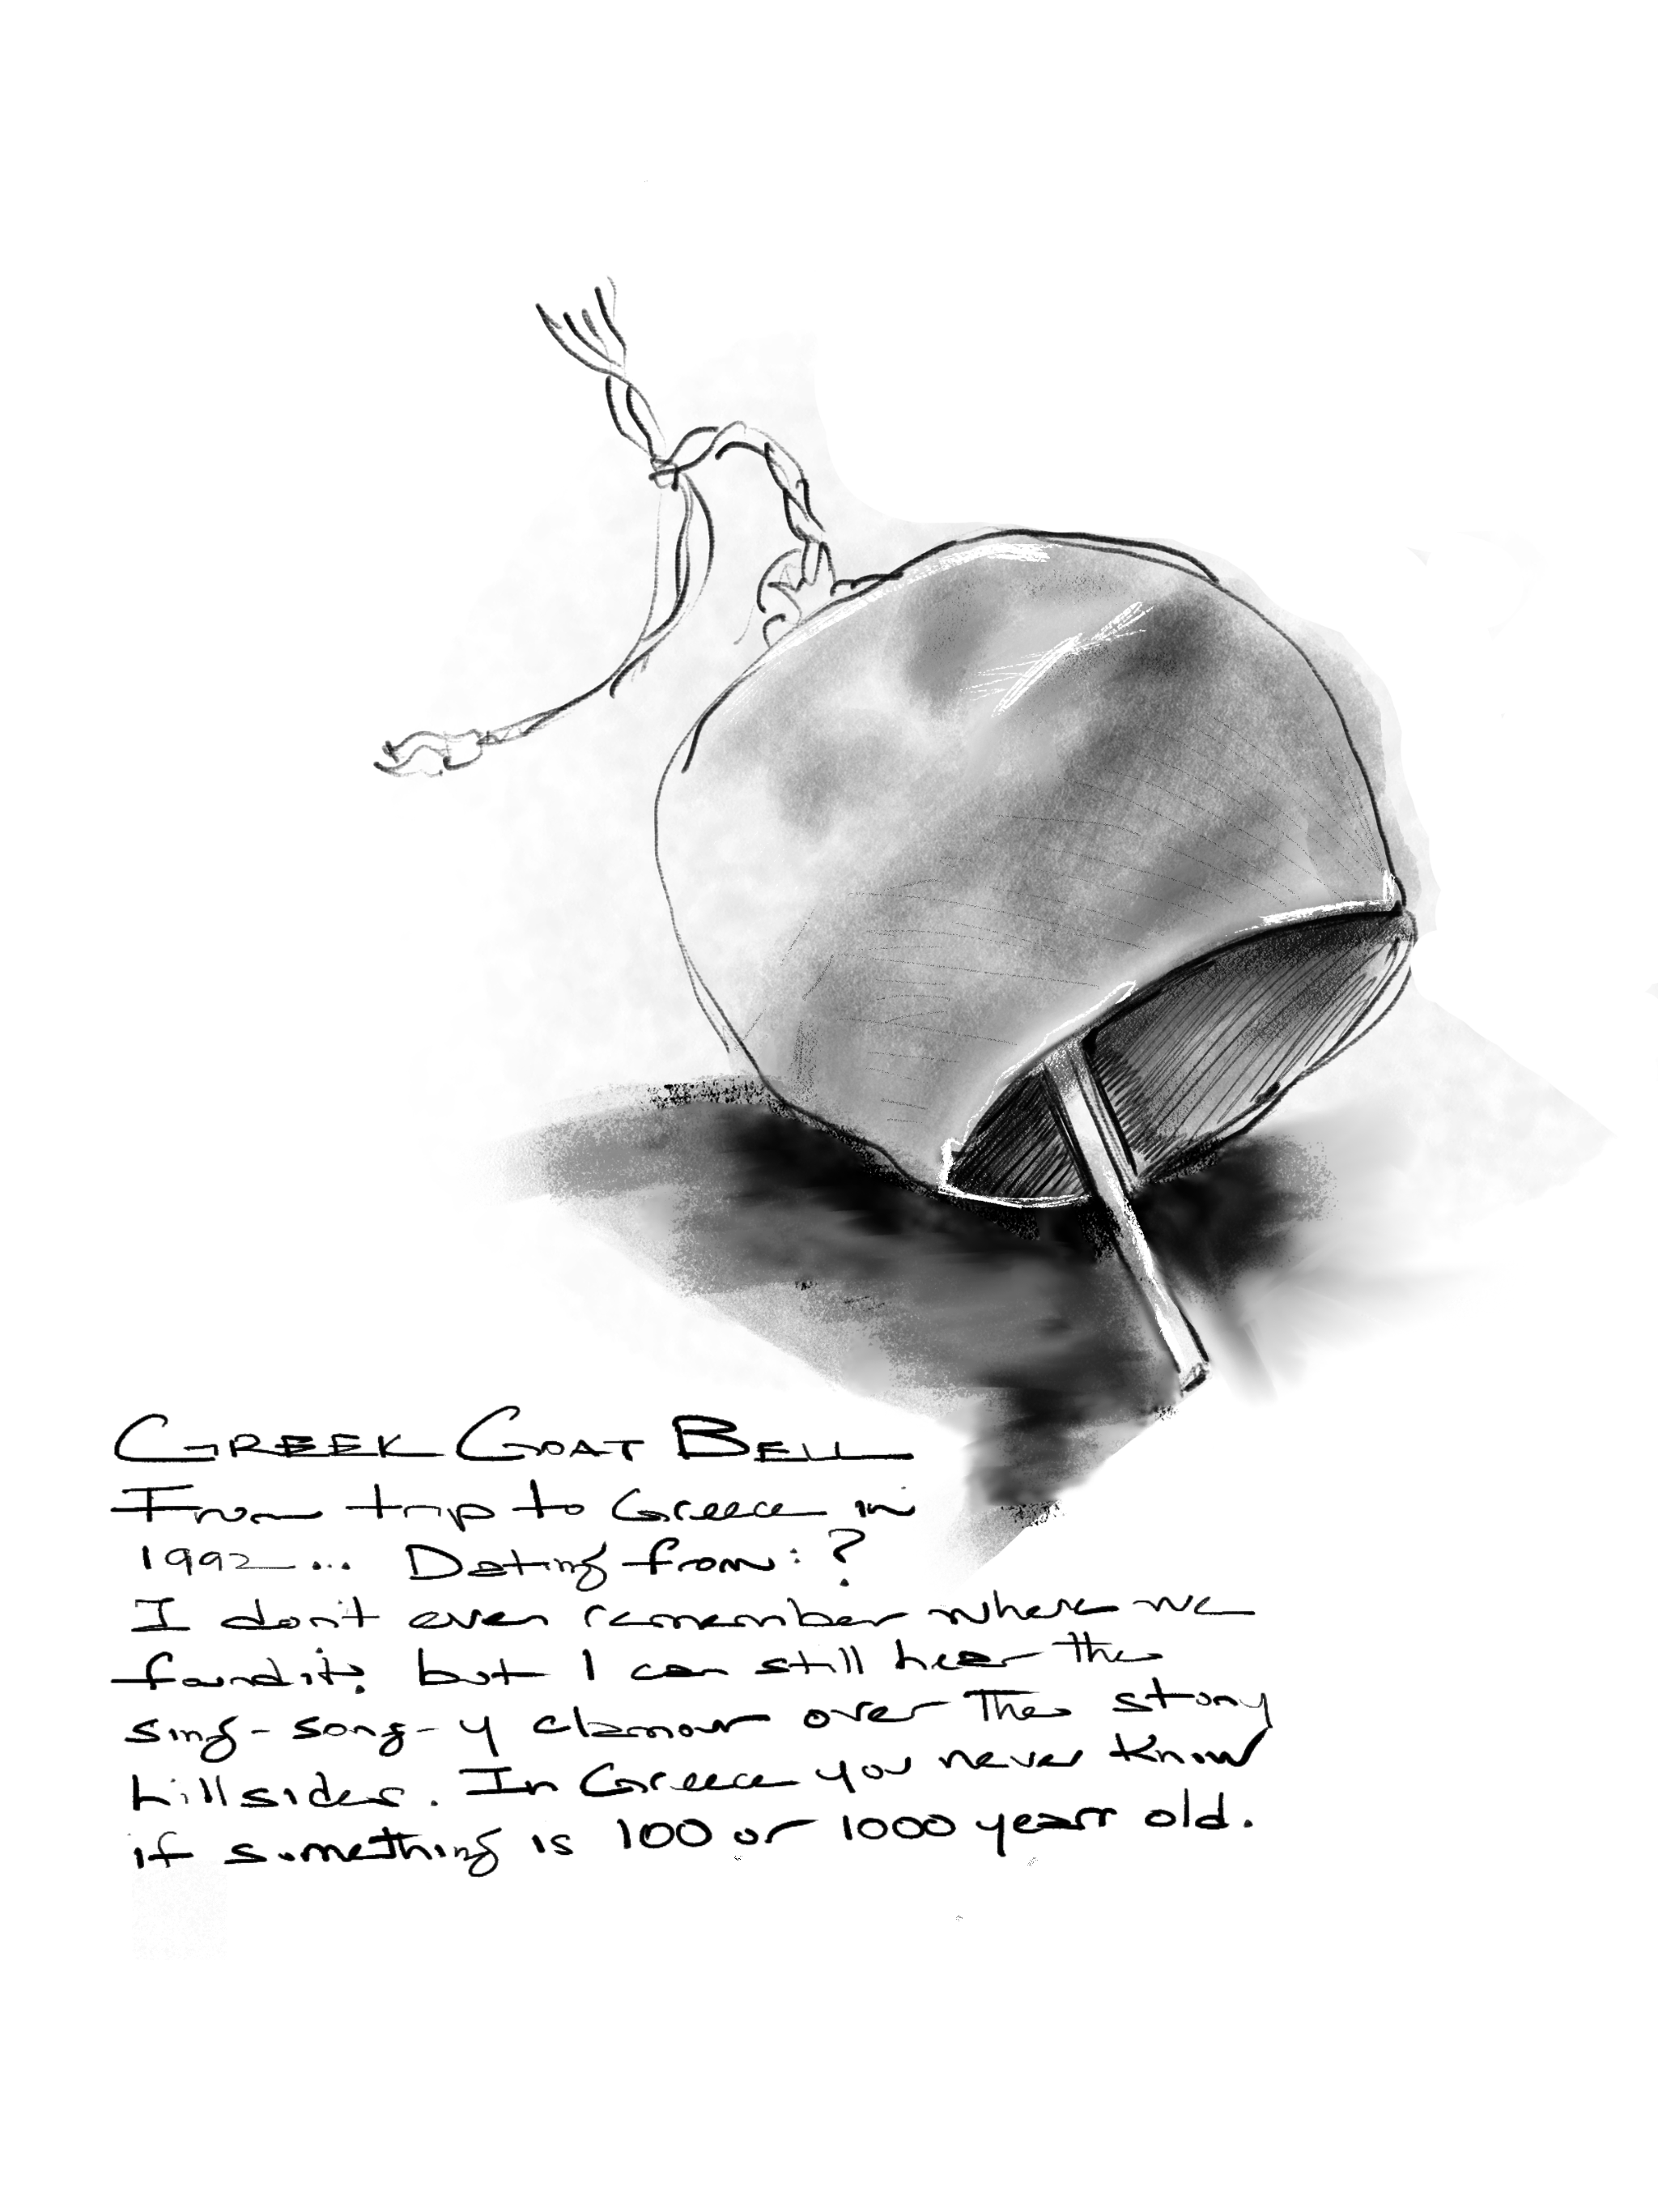 GREEK GOAT BELL
From trip to Greece in
1992... Dating from: ?
I don't even remember where we
found it. but I can still hear the
sing-song-y clamour over the stony
hillsides. In Greece you never know
if something is 100 or 1000 years old.